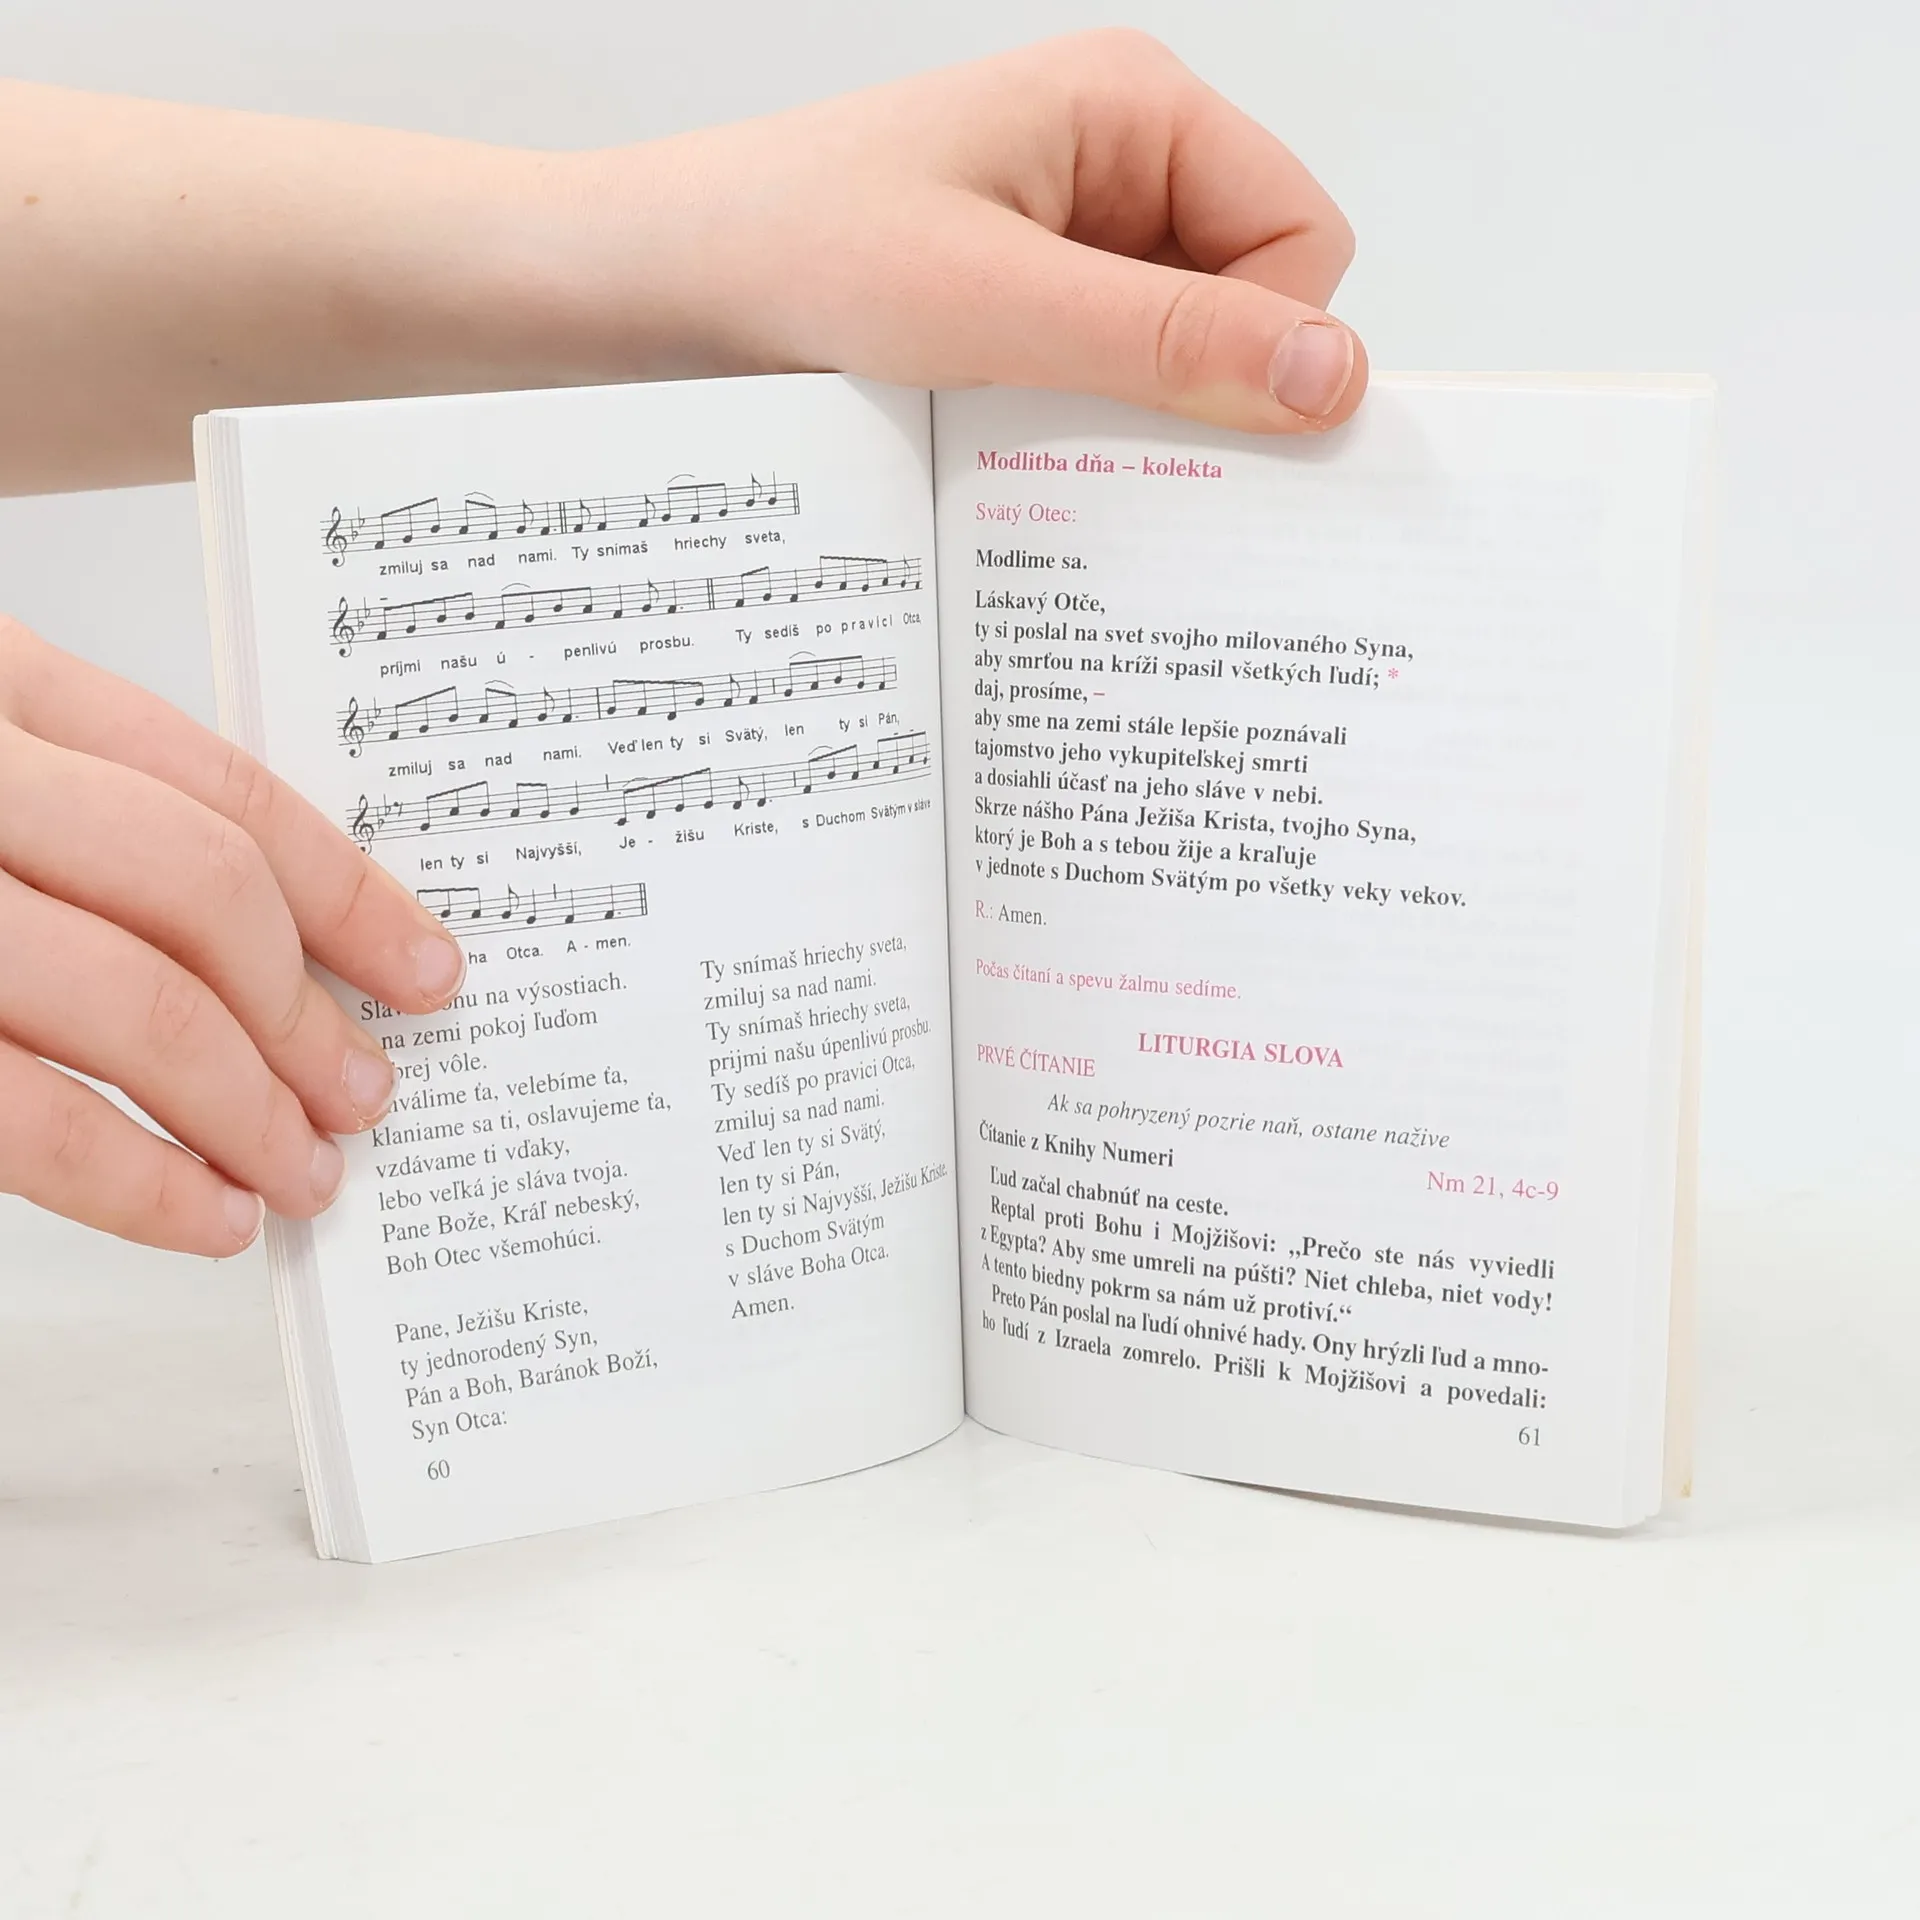 zmiluj sa nad nami. Ty snímaš hriechy sveta,
príjmi našu ú - penlivú prosbu. Ty sedíš po pravici Otca,
zmiluj sa nad nami. Veď len ty si Svätý, len ty si Pán,
len ty si Najvyšší, Je - žišu Kriste, s Duchom Svätým v sláve
ha Otca. A - men.
na výsostiach.
na zemi pokoj ľuďom
vôle.
velebíme ťa,
klaniame sa ti, oslavujeme ťa,
vzdávame ti vďaky,
lebo veľká je sláva tvoja.
Pane Bože, Kráľ nebeský,
Boh Otec všemohúci.
Pane, Ježišu Kriste,
ty jednorodený Syn,
Pán a Boh, Baránok Boží,
Syn Otca:
60
Ty snímaš hriechy sveta,
zmiluj sa nad nami.
Ty snímaš hriechy sveta,
prijmi našu úpenlivú prosbu.
Ty sedíš po pravici Otca,
zmiluj sa nad nami.
Veď len ty si Svätý,
len ty si Pán,
len ty si Najvyšší, Ježišu Kriste.
s Duchom Svätým
v sláve Boha Otca.
Amen.
Modlitba dňa – kolekta
Svätý Otec:
Modlime sa.
Láskavý Otče,
ty si poslal na svet svojho milovaného Syna,
aby smrťou na kríži spasil všetkých ľudí; *
daj, prosíme, –
aby sme na zemi stále lepšie poznávali
tajomstvo jeho vykupiteľskej smrti
a dosiahli účasť na jeho sláve v nebi.
Skrze nášho Pána Ježiša Krista, tvojho Syna,
ktorý je Boh a s tebou žije a kraľuje
v jednote s Duchom Svätým po všetky veky vekov.
R.: Amen.
Počas čítaní a spevu žalmu sedíme.
LITURGIA SLOVA
PRVÉ ČÍTANIE
Ak sa pohryzený pozrie naň, ostane nažive
Čítanie z Knihy Numeri
Nm 21, 4c-9
Ľud začal chabnúť na ceste.
Reptal proti Bohu i Mojžišovi: „Prečo ste nás vyviedli
z Egypta? Aby sme umreli na púšti? Niet chleba, niet vody!
A tento biedny pokrm sa nám už protiví.“
Preto Pán poslal na ľudí ohnivé hady. Ony hrýzli ľud a mno-
ho ľudí z Izraela zomrelo. Prišli k Mojžišovi a povedali:
61